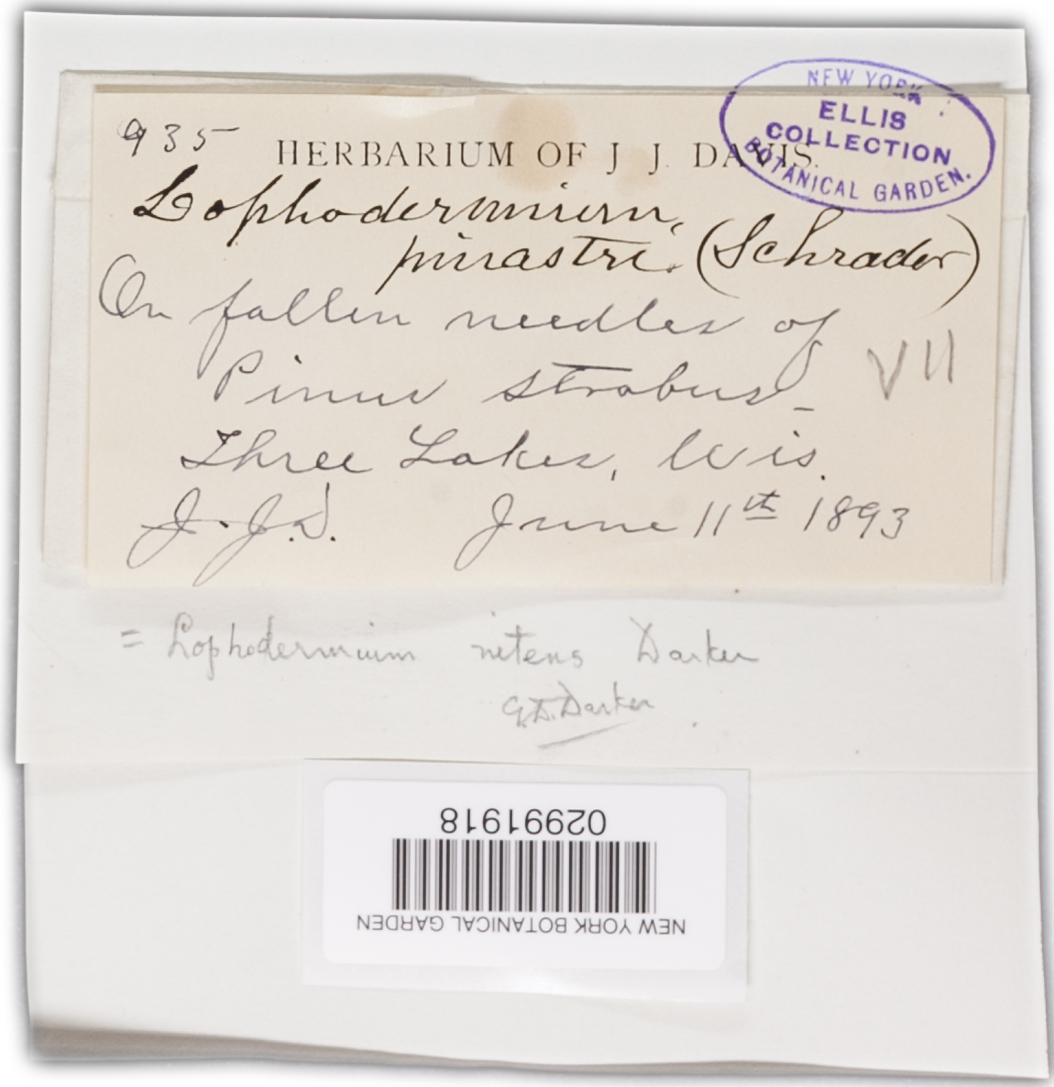 935
HERBARIUM OF J. J. DAVIS.
NEW YORK
ELLIS
COLLECTION
BOTANICAL GARDEN.
Lophodermium
pinastri. (Schrader)
On fallen needles of
Pinus strobus_
VII
Three Lakes, Wis.
J. J. D. June 11th 1893
= Lophodermium nitens Darker
G.D. Darker
02991918
NEW YORK BOTANICAL GARDEN